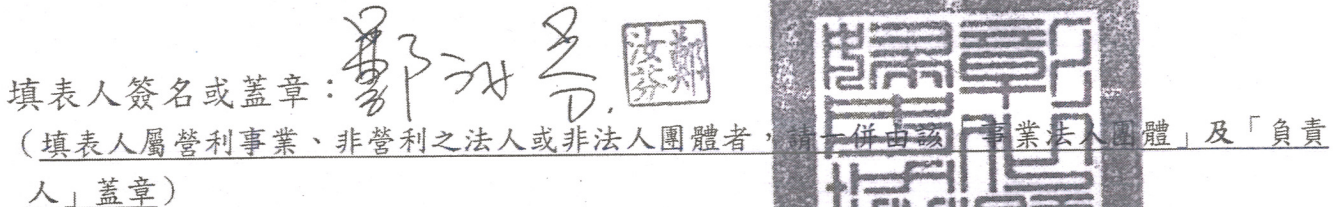 填表人簽名或蓋章：鄭汝芬
鄭汝芬
（填表人屬營利事業、非營利之法人或非法人團體者，請一併由該「事業法人團體」及「負責
人」蓋章）